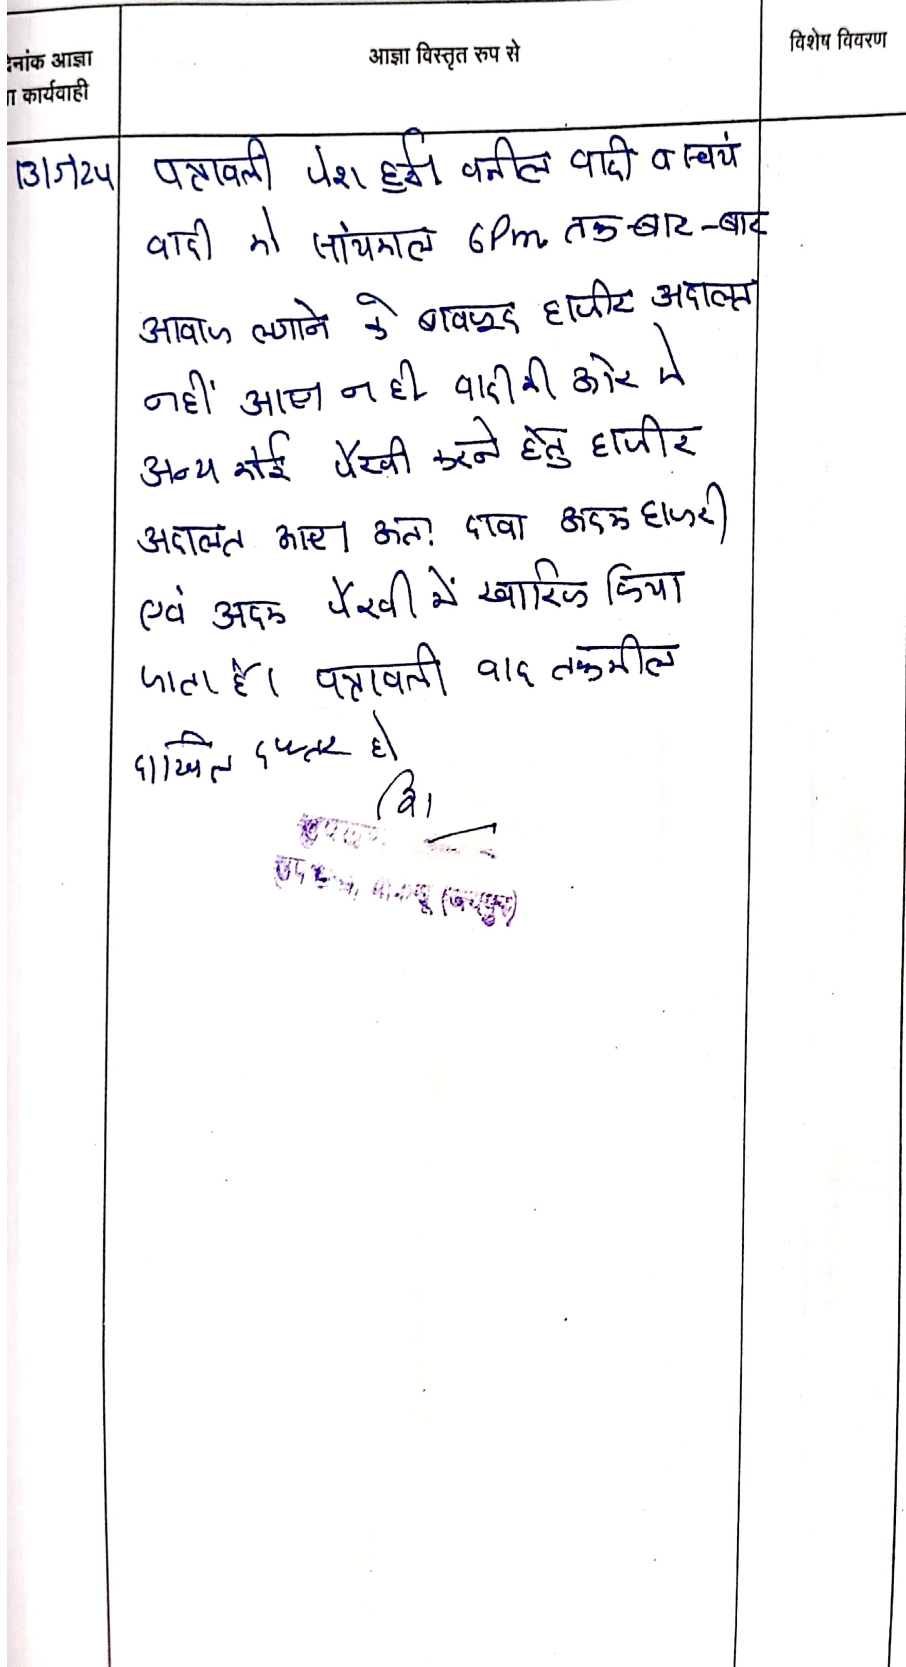 दिनांक आज्ञा
या कार्यवाही
आज्ञा विस्तृत रुप से
विशेष विवरण
13/5/24
पत्रावली पेश हुई। वकील वादी व स्वयं
वादी को सांयकाल 6Pm तक बार-बार
आवाज लगाने के बावजूद हाजीर अदालत
नहीं आए न ही वादी की ओर से
अन्य कोई पैरवी करने हेतु हाजीर
अदालत आए। अतः दावा अदम हाजरी
एवं अदम पैरवी में खारिज किया
जाता है। पत्रावली बाद तकमील
दाखिल दफ्तर हो
(जयपुर)